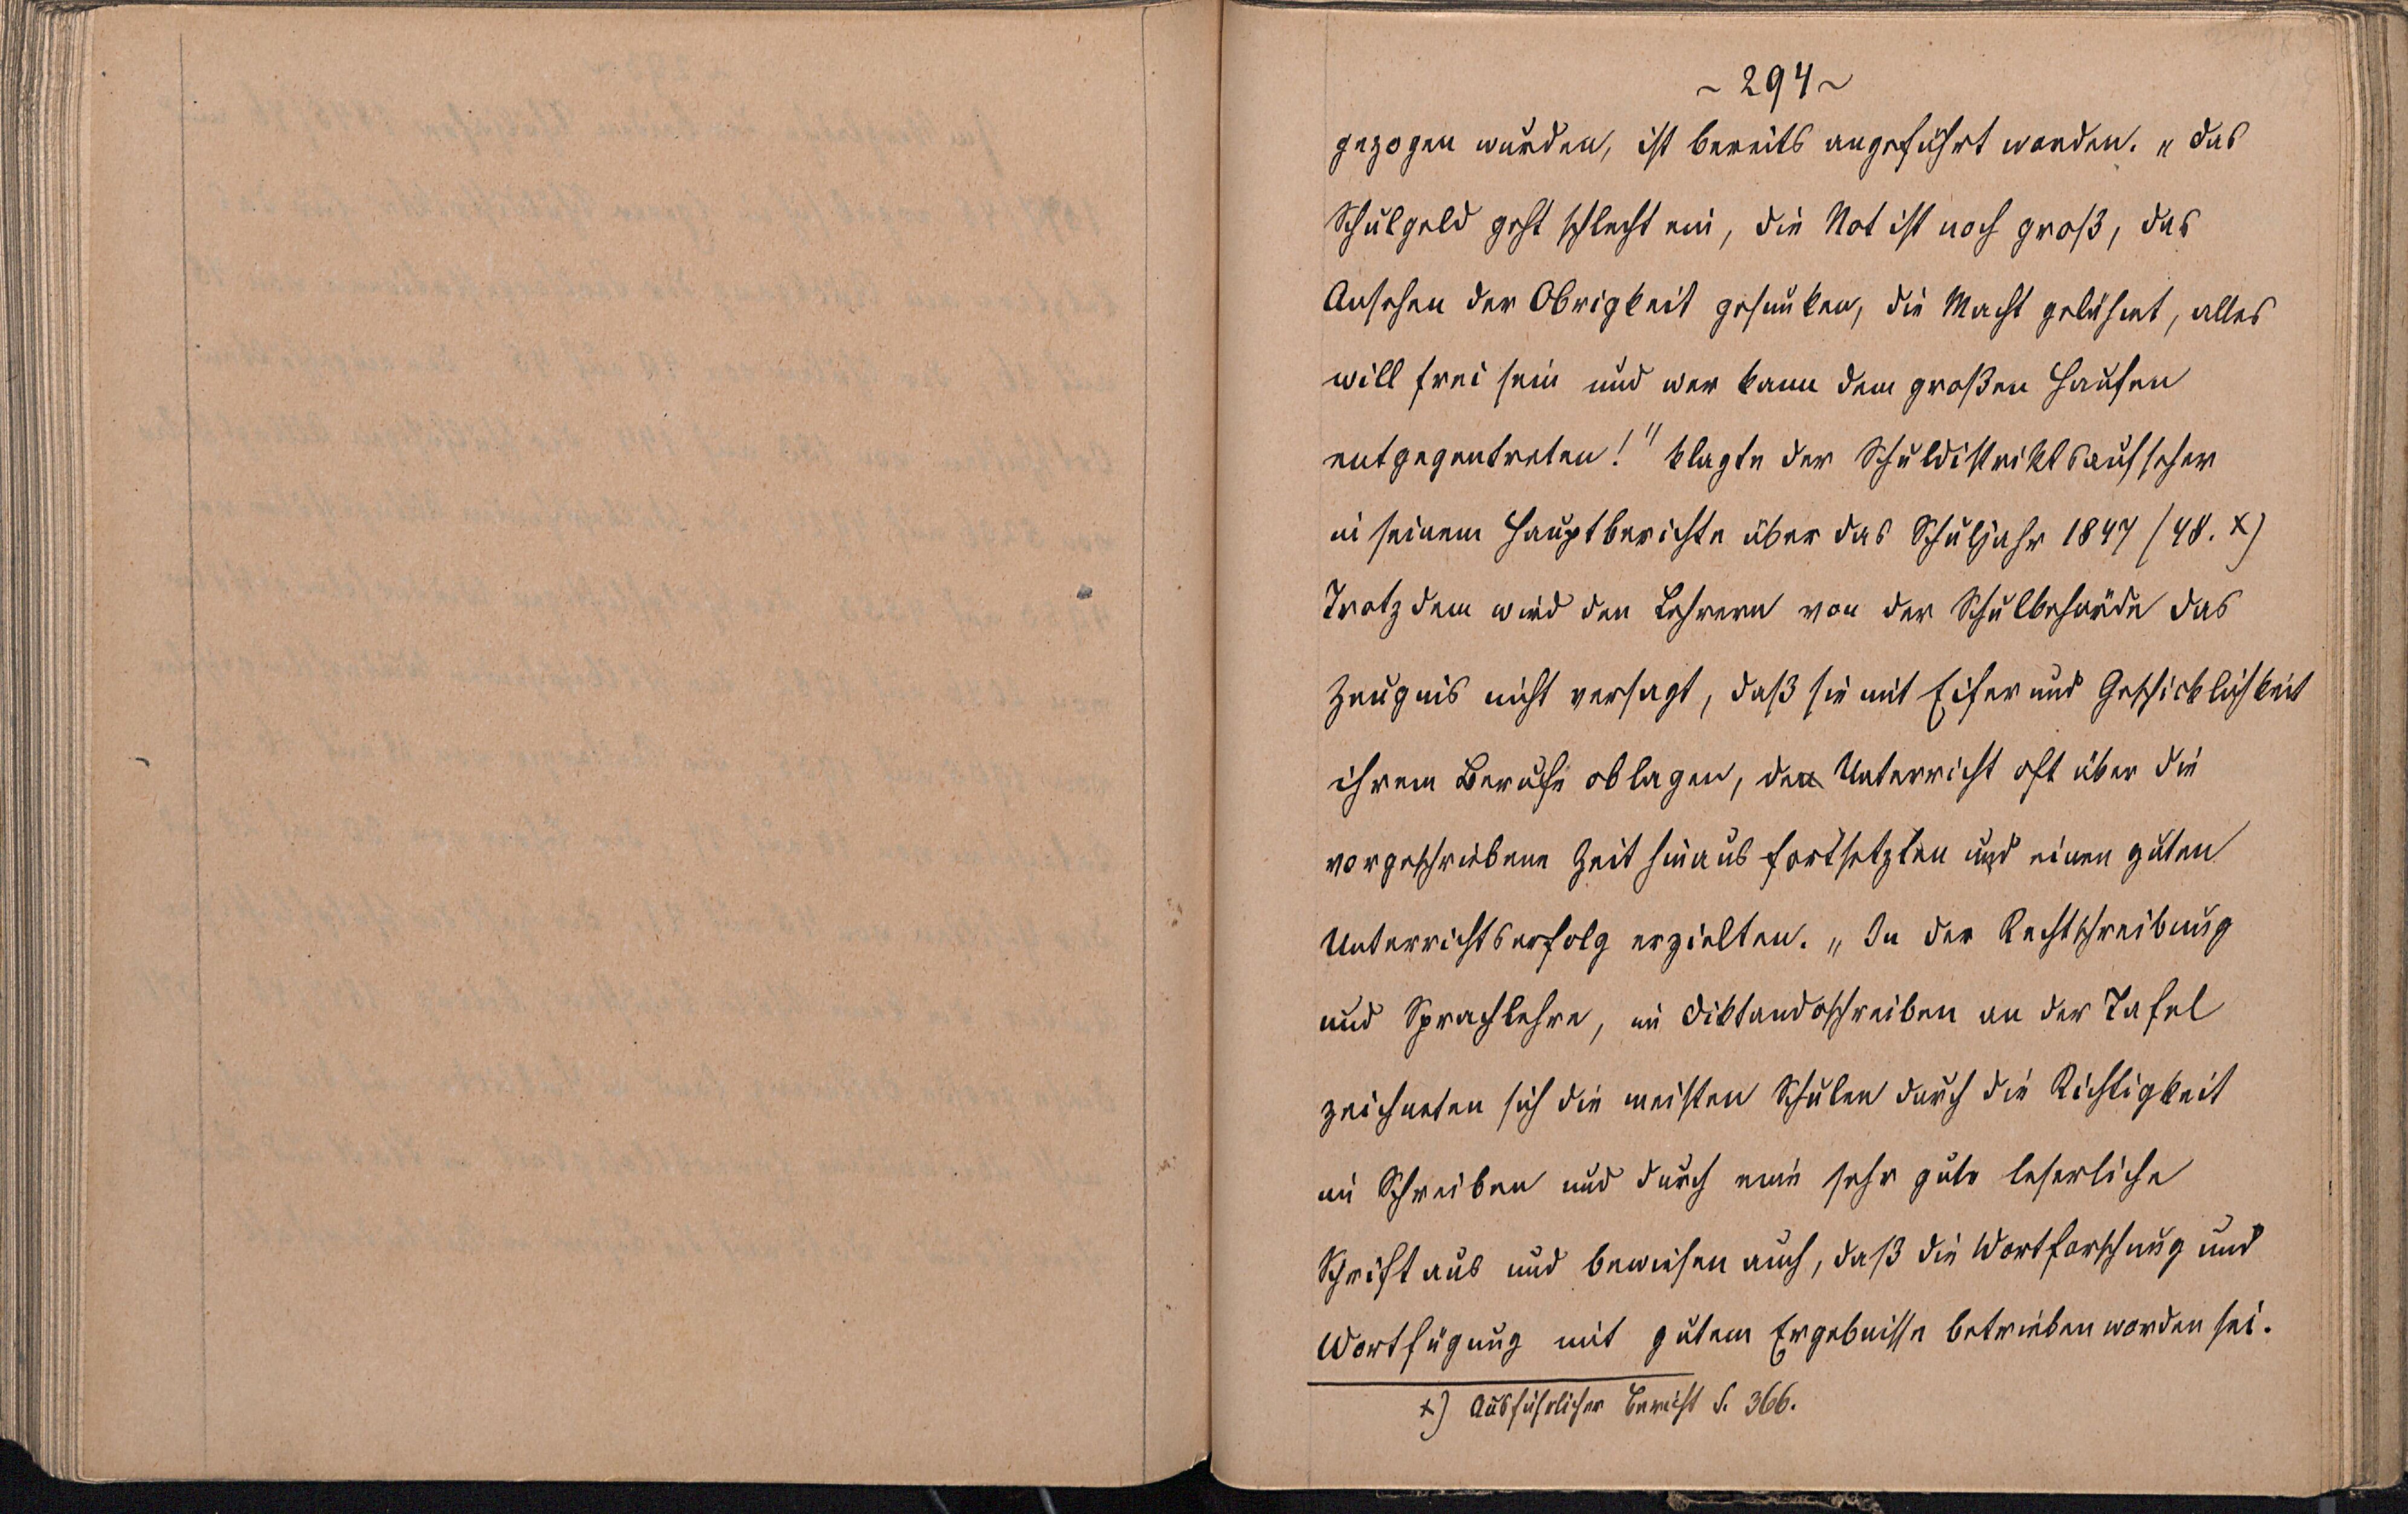 ~ 294 ~
gezogen wurden, ist bereits angeführt worden. „das
Schulgeld geht schlecht ein, die Not ist noch groß, das
Ansehen der Obrigkeit gesunken, die Macht gelähmt, alles
will frei sein und wer kann dem großen Haufen
entgegentreten!" klagte der Schuldistriktsaufseher
in seinem Hauptberichte über das Schuljahr 1847/48. x)
Trotzdem wird den Lehrern von der Schulbehörde das
Zeugnis nicht versagt, daß sie mit Eifer und Geschicklichkeit
ihrem Berufe oblagen, den Unterricht oft über die
vorgeschriebene Zeit hinaus fortsetzten und einen guten
Unterrichtserfolg erzielten. „In der Rechtschreibung
und Sprachlehre, im Diktandoschreiben an der Tafel
zeichneten sich die meisten Schulen durch die Richtigkeit
im Schreiben und durch eine sehr gute leserliche
Schrift aus und bewiesen auch, daß die Wortforschung und
Wortfügung mit gutem Ergebnisse betrieben worden sei.
x) Ausführlicher Bericht S. 366.